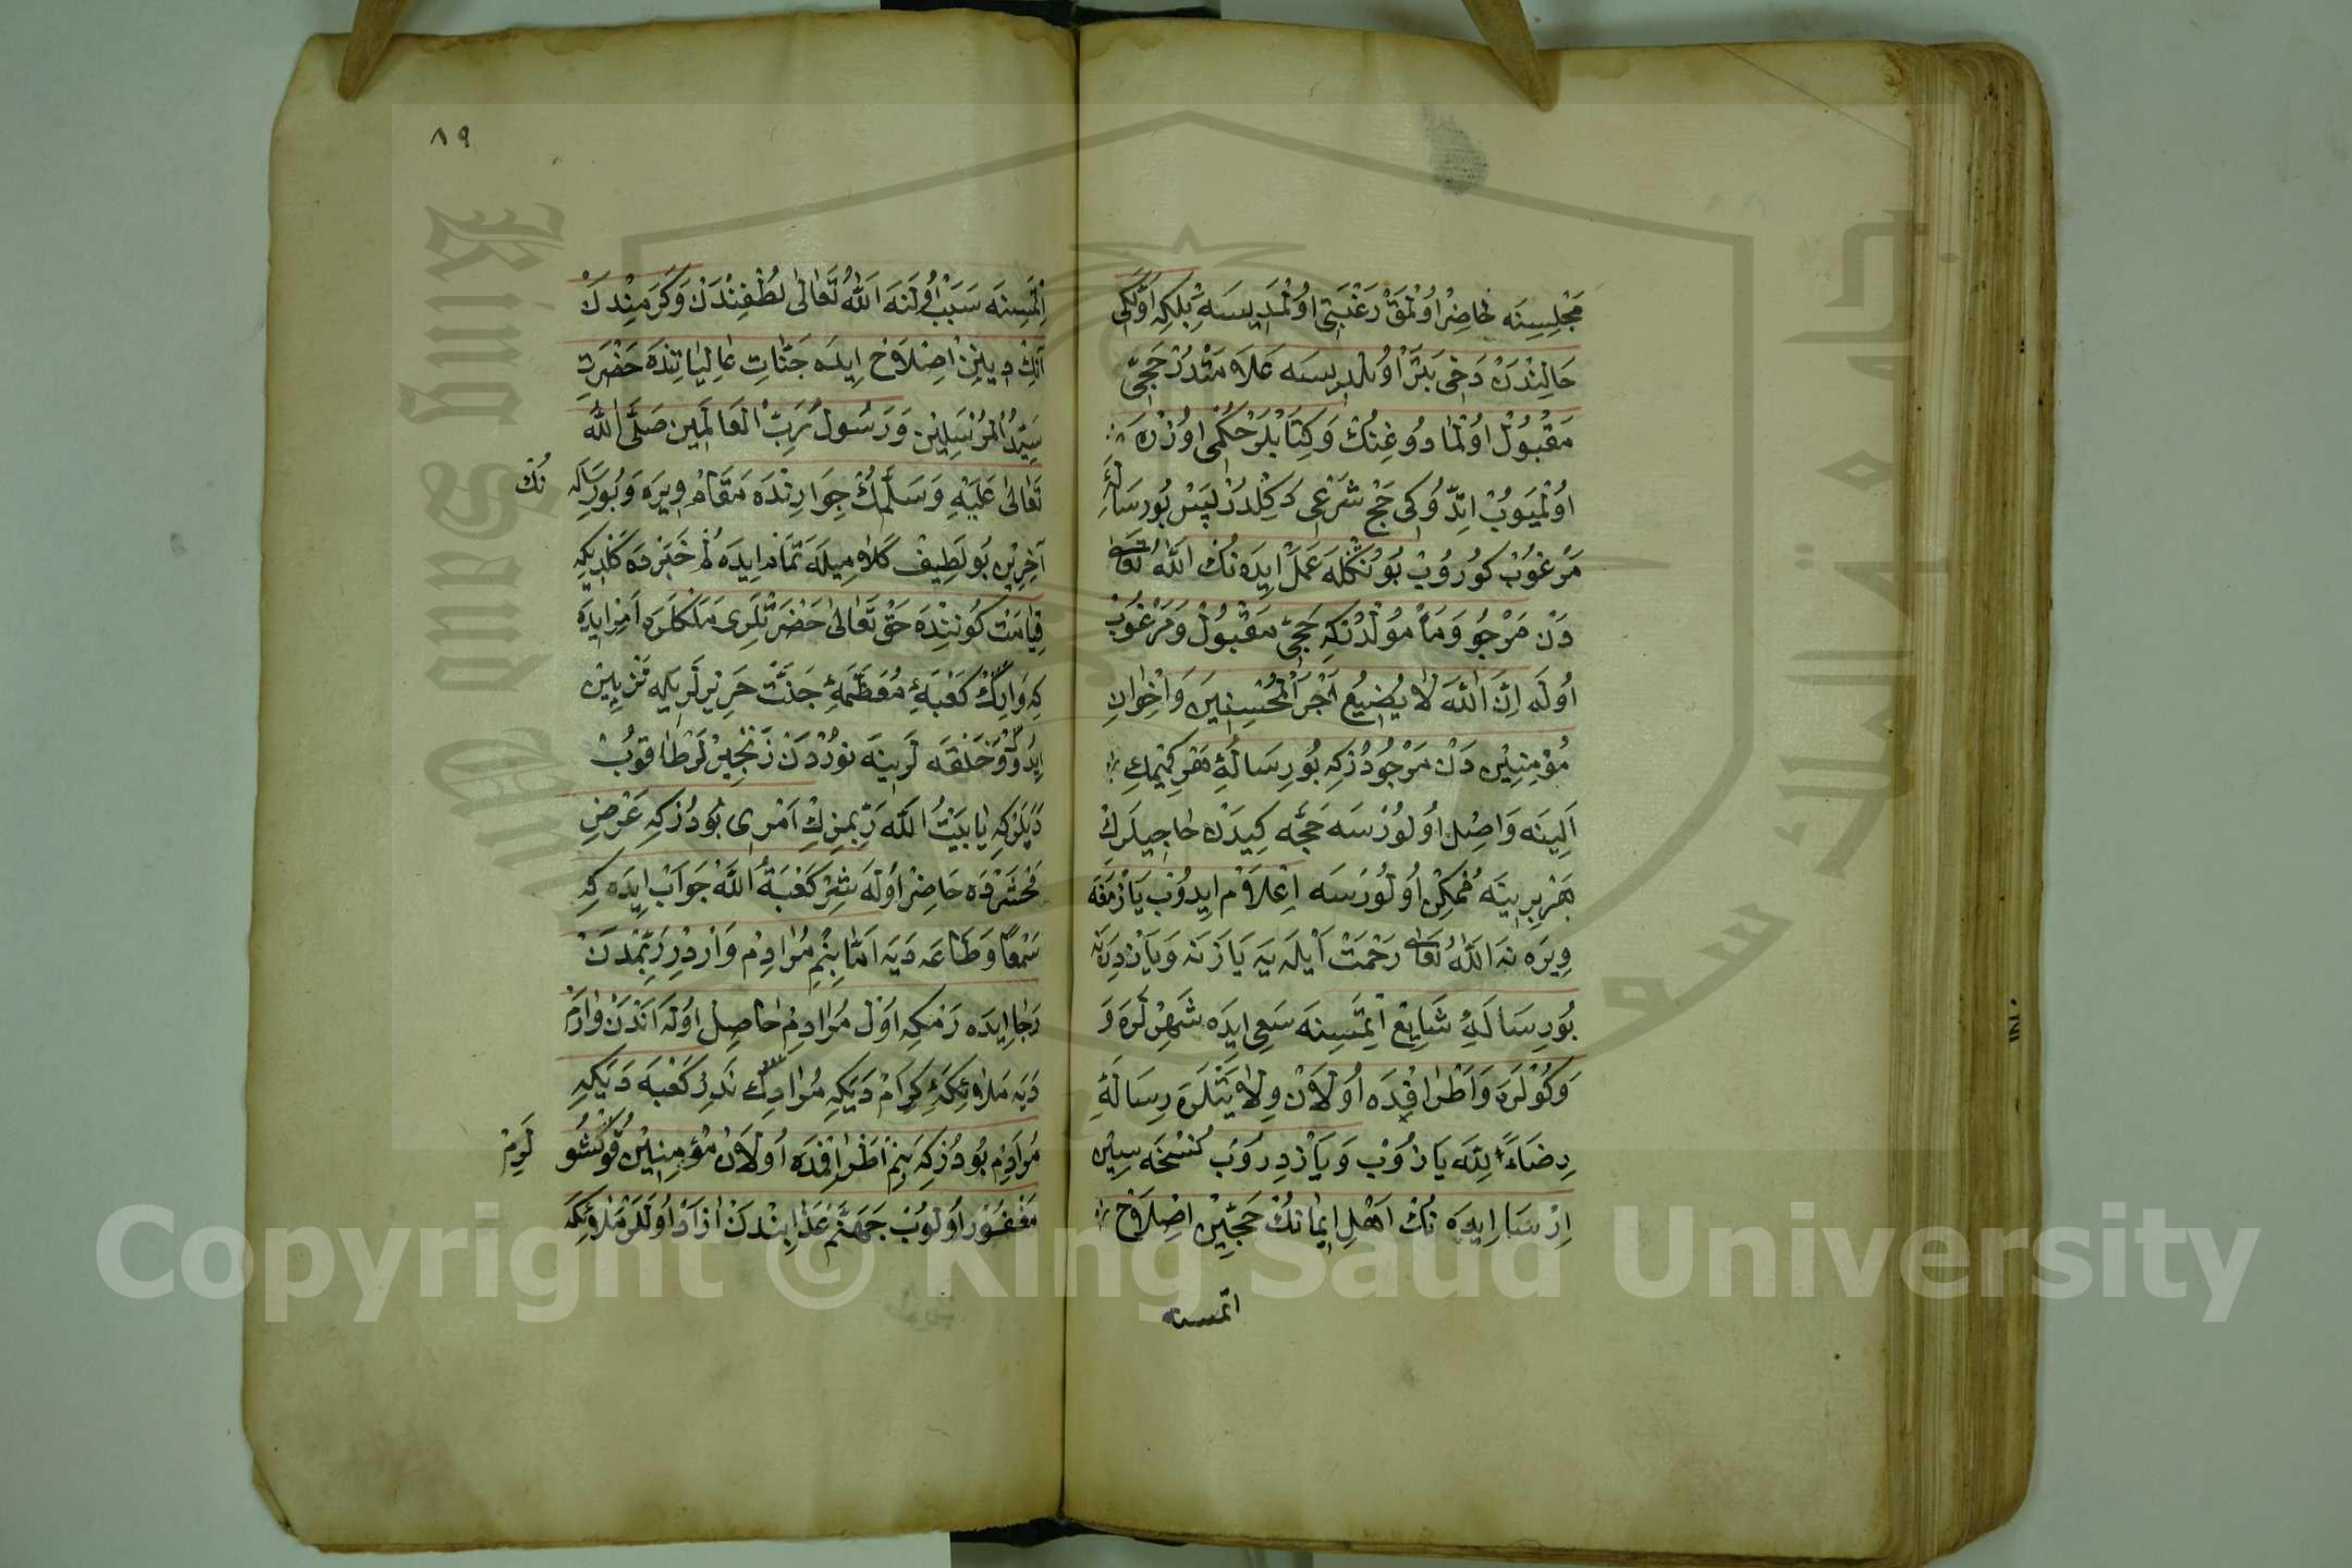 مَجْلِسِنَه حَاضِرْ اُولْمَقْ رَغْبَتِى اُولْمَدِيسَه بَلْكِه اَوَّلْكِى
حَالِنْدَنْ دَخِى بَتَرْ اُولْدِيسَه عَلَامَتْدُرْ حَجِّى
مَقْبُولْ اُولْمَادُوغِنُكْ وَكِتَابْلَرْ حُكْمِى اُوزْرَه
اُولْمَيُوبْ اِتْدُوكِى حَجِّ شَرْعِى دَكِلْدُرْ پَسْ بُو رِسَالَهِٔ
مَرْغُوبْ كُورُوبْ بُونُكْلَه عَمَلْ اِيدَه نُكْ اَللّٰهُ تَعَالٰى
دَنْ مَرْجُو وَمَأْمُولْدُرْكِه حَجِّى مَقْبُولْ وَمَرْغُوبْ
اُولَه اِنَّ اللّٰهَ لَا يُضِيعُ اَجْرَ الْمُحْسِنِينَ وَاخْوَانِ
مُؤْمِنِينْ دَنْ مَرْجُودُرْكِه بُو رِسَالَهِٔ هَرْ كِمْكِ
اَلِينَه وَاصِلْ اُولُورْسَه حَجَّه كِيدَنْ حَاجِيلَرِكْ
هَرْ بِرِينَه مُمْكِنْ اُولُورْسَه اِعْلَامْ اِيدُوبْ يَازْمَغَه
وِيرَه نَه اَللّٰهُ تَعَالٰى رَحْمَتْ اَيْلَيَه يَازَنَه وَيَازْدِرَنَه
بُو رِسَالَهِٔ شَايِعْ اِتْمَسِنَه سَعِى اِيدَه شَهِرْلَرَه وَ
وَكُويْلَرَه وَاَطْرَافِدَه اُولَانْ وِلَايَتْلَرَه رِسَالَهِٔ
رِضَاءً لِلّٰه يَازُوبْ وَيَازْدِرُوبْ نُسْخَه سِينْ
اِرْسَال اِيدَه نُكْ اَهْلِ اِيمَانُكْ حَجِّينْ اِصْلَاحْ
اتمسنه
٨٩
اِتْمَسِنَه سَبَبْ اُولَنَه اَللّٰهُ تَعَالٰى لُطْفِنْدَنْ وَكَرَمِنْدَنْ
اَنُكْ دِينِنْ اِصْلَاحْ اِيدَه جَنَّاتِ عَالِيَاتِنْدَه حَضْرَتِ
سَيِّدُ الْمُرْسَلِينْ وَرَسُولُ رَبِّ الْعَالَمِينْ صَلَّى اللّٰهُ
تَعَالٰى عَلَيْهِ وَسَلَّمُكْ جِوَارِنْدَه مَقَامْ وِيرَه وَبُو رِسَالَه نُكْ
آخِرِينْ بُو لَطِيفْ كَلَامِيلَه تَمَامْ اِيدَه لُمْ خَبَرْدَه كَلْدِيكِه
قِيَامَتْ كُونِنْدَه حَقْ تَعَالٰى حَضْرَتْلَرِى مَلَكْلَرَه اَمْرْ اِيدَه
كِه وَارِكْ كَعْبَهِٔ مُعَظَّمَهِٔ جَنَّتْ حَرِيرْلَرِيلَه تَزْيِينْ
اِيدُوكْ وَحَلْقَه لَرِينَه نُورْدَنْ زَنْجِيرْلَرْ طَاقُوبْ
دَيْلَرْكِه يَا بَيْتُ اللّٰه رَبِّمِزِكْ اَمْرِى بُودُرْكِه عَرْضِ
مَحْشَرْدَه حَاضِرْ اُولَه سِزْ كَعْبَةُ اللّٰه جَوَابْ اِيدَه كِه
سَمْعًا وَطَاعَه دَيَه اَمَّا بِنِمْ مُرَادِمْ وَارْدِرْ رَبِّمْدَنْ
رَجَا اِيدَه رَمْكِه اَوَّلْ مُرَادِمْ حَاصِلْ اُولَه اَنْدَنْ وَارَمْ
دَيَه مَلَائِكَهِٔ كِرَامْ دَيَكِه مُرَادِكْ نَدِرْ كَعْبَه دَيَكِه
مُرَادِمْ بُودُرْكِه بَنِمْ اَطْرَافِمْدَه اُولَانْ مُؤْمِنِينْ قُوكْشُو لَرِمْ
مَغْفُورْ اُولُوبْ جَهَنَّمْ عَذَابِنْدَنْ اٰزَادْ اُولَلَرْ مَلَائِكَه
Copyright © King Saud University